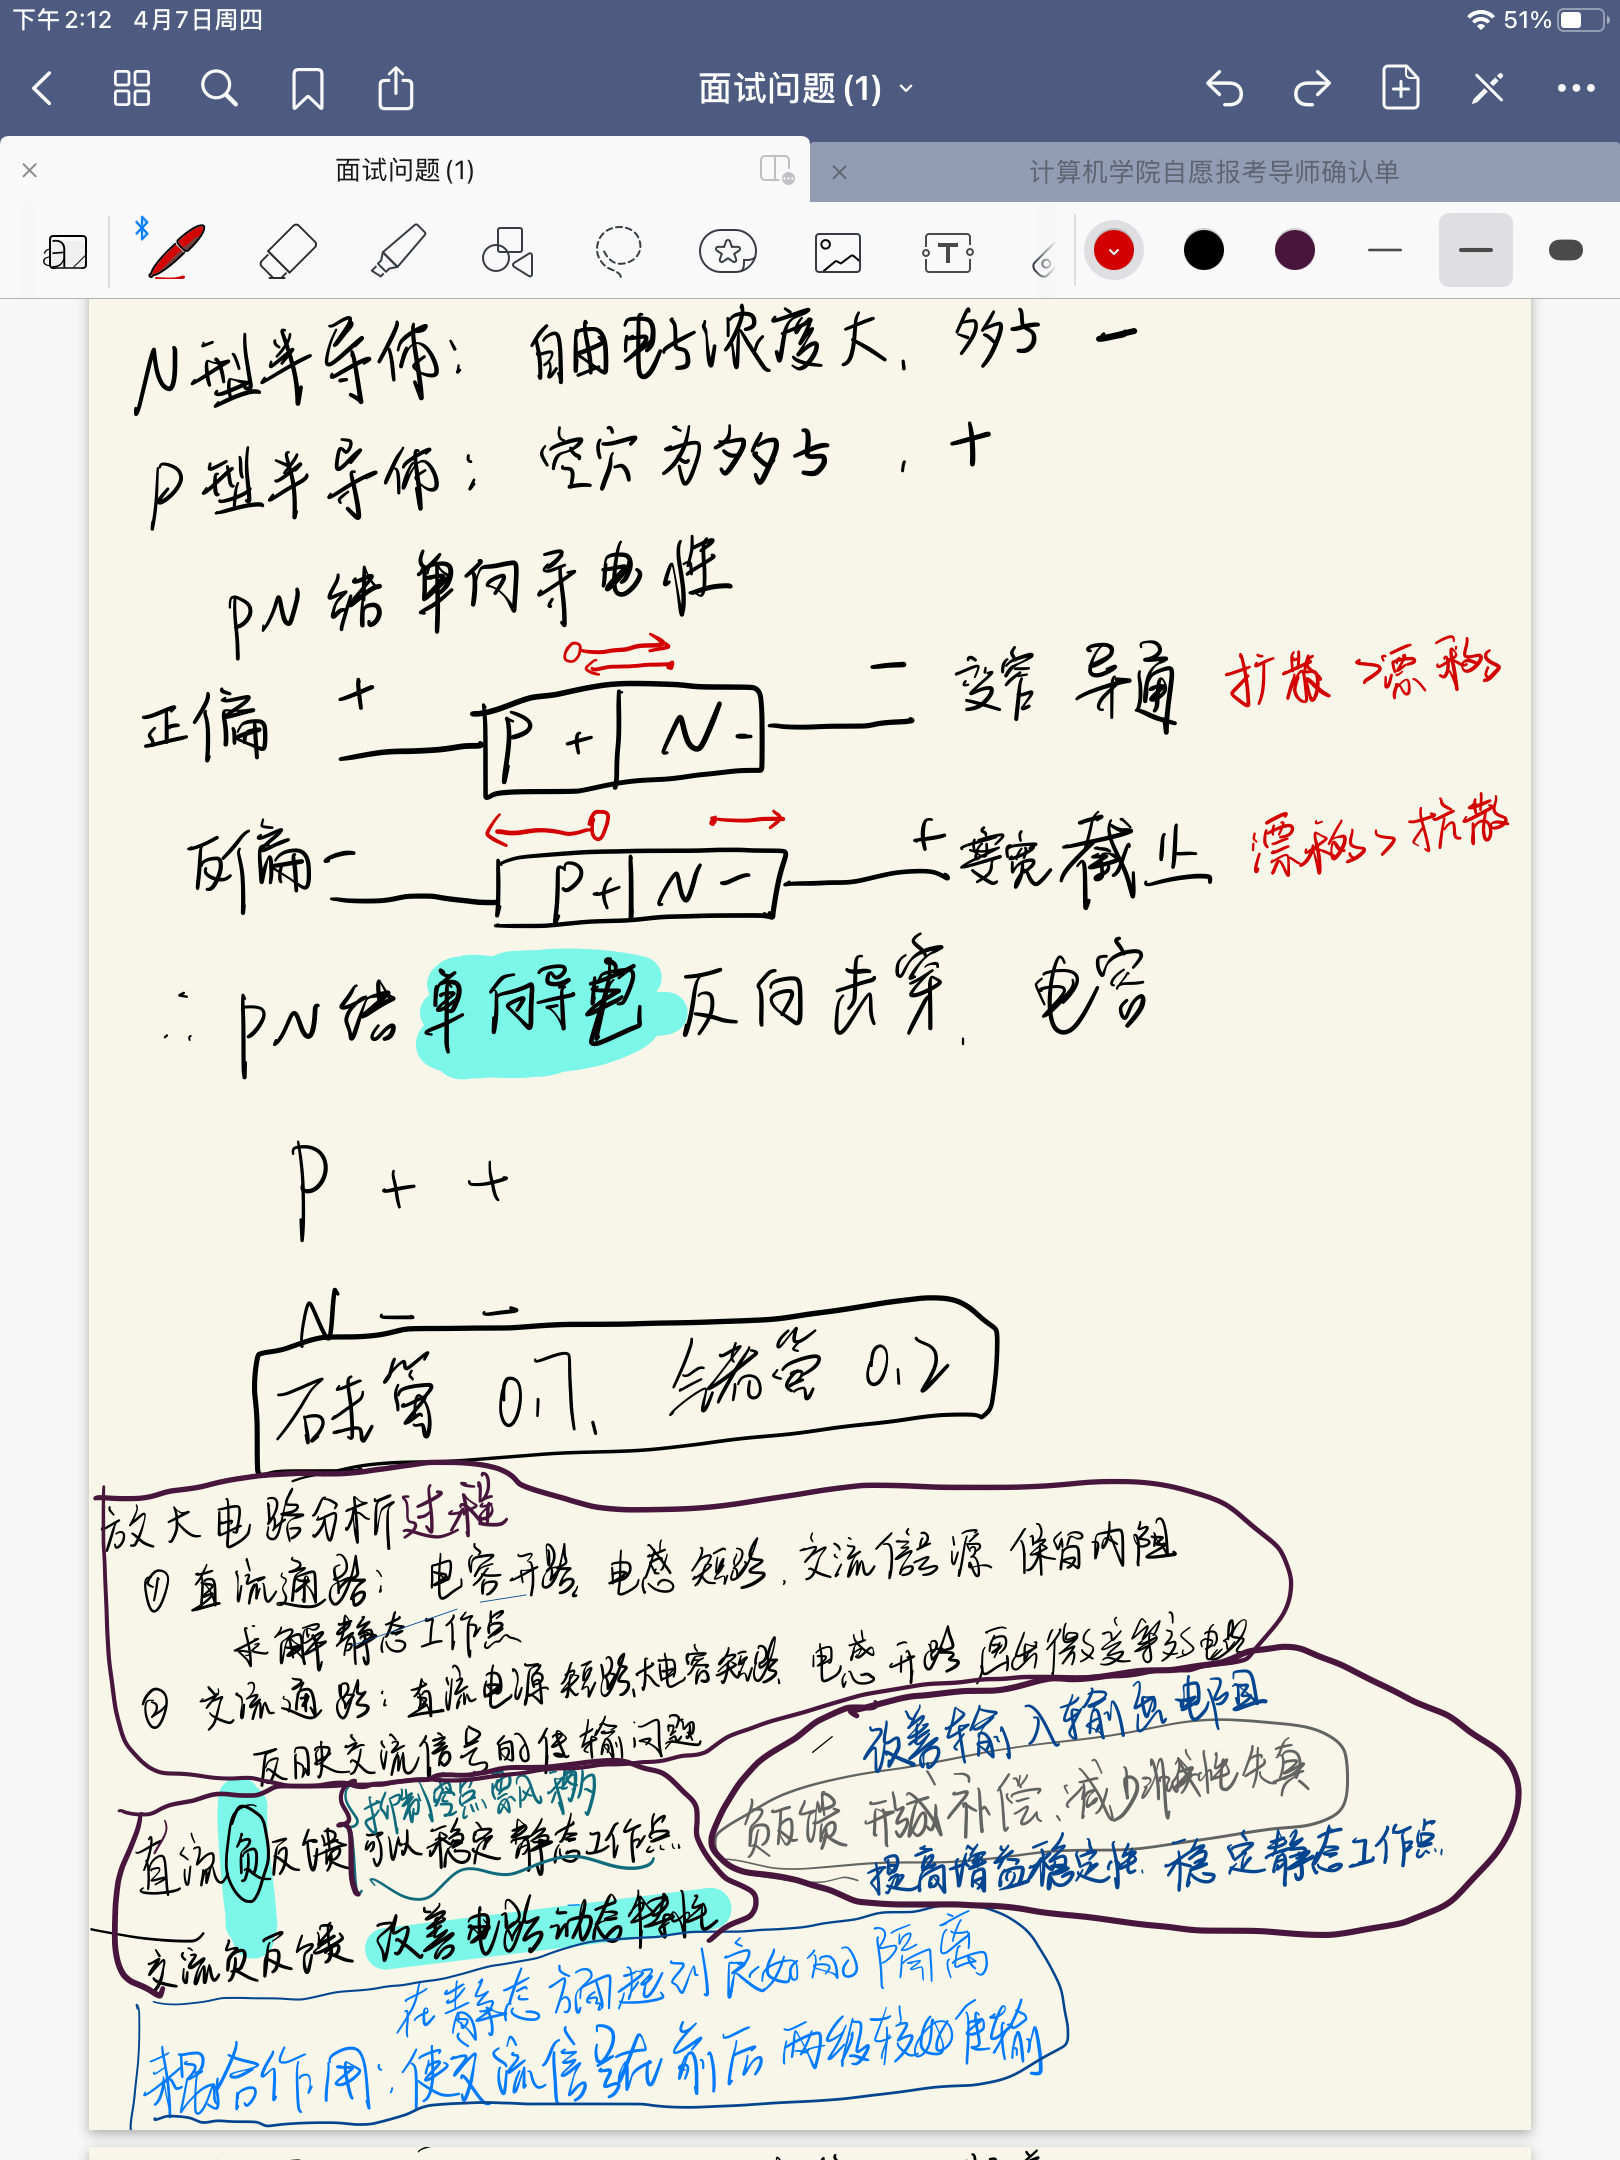 下午2:12 4月7日周四 51%
面试问题 (1)
面试问题 (1)
计算机学院自愿报考导师确认单
N型半导体: 自由电子浓度大, 多子 −
P型半导体: 空穴为多子, +
PN结单向导电性
正偏 + P + N - − 变窄 导通 扩散 > 漂移
反偏 − P + N − + 变宽 截止 漂移 > 扩散
∴ PN结 单向导电 反向击穿, 电容
P + +
N − −
硅管 0.7, 锗管 0.2
放大电路分析过程
① 直流通路: 电容开路, 电感短路, 交流信号源 保留内阻
求解静态工作点
② 交流通路: 直流电源短路, 大电容短路, 电感开路 画出微变等效电路
反映交流信号的传输问题
改善输入输出电阻
负反馈 形成补偿, 减少非线性失真
提高增益稳定性, 稳定静态工作点
抑制零点飘移
直流负反馈 可以稳定静态工作点
交流负反馈 改善电路动态特性
在静态方面起到良好的隔离
耦合作用: 使交流信号在前后两级较好传输